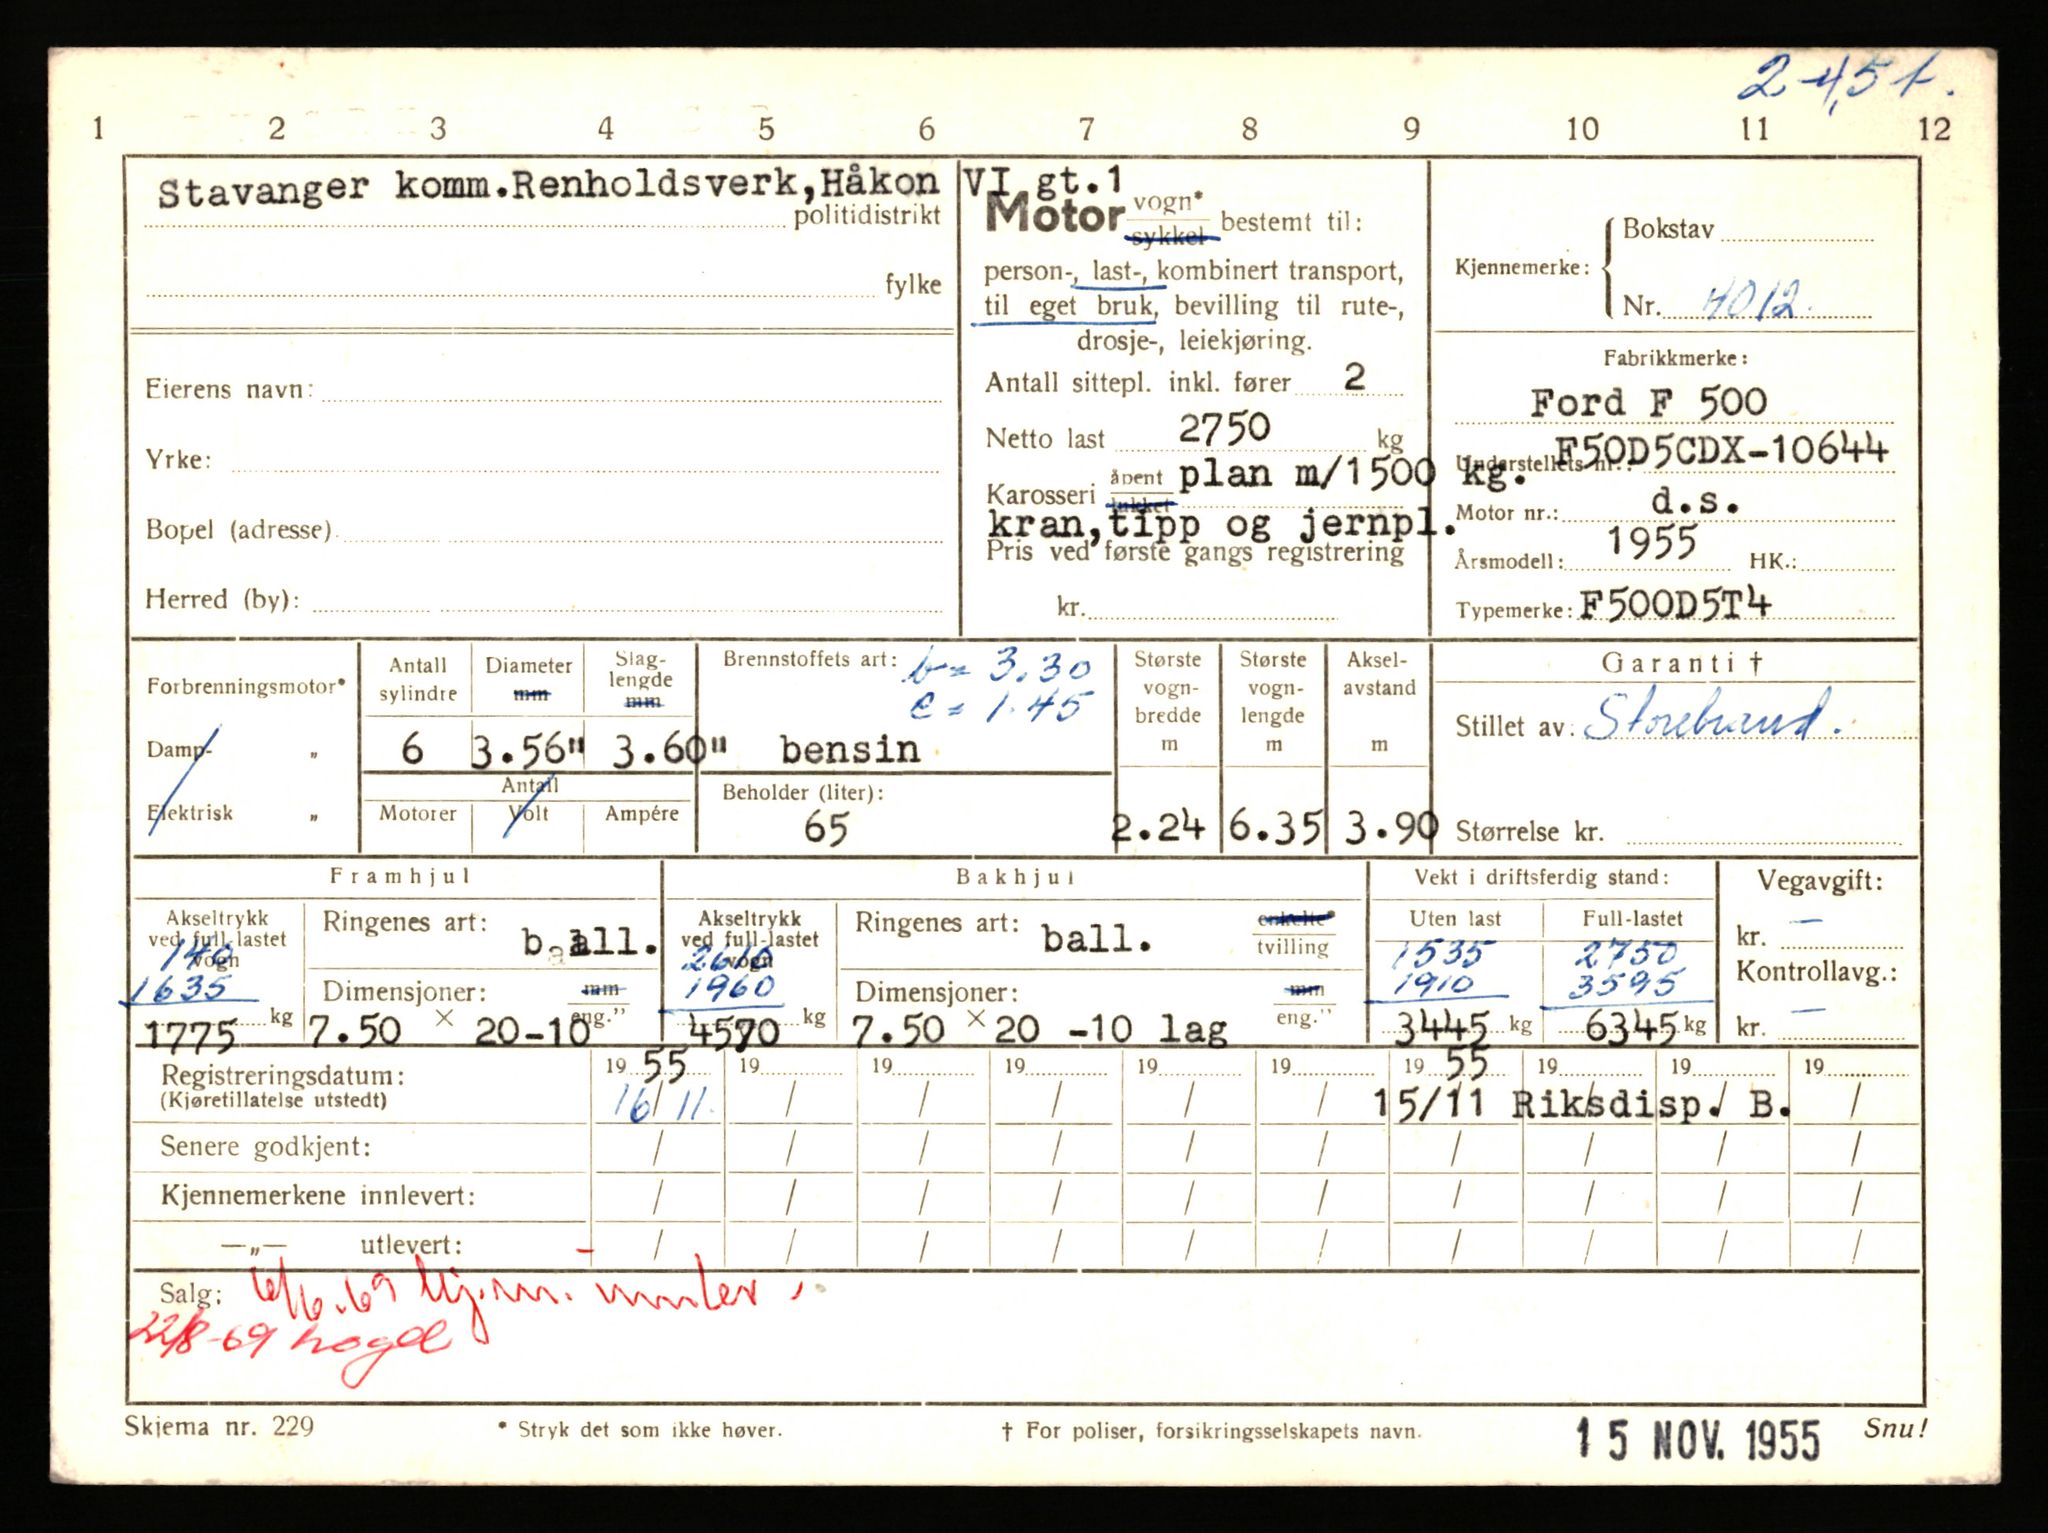 2-4,5 t.
1 2 3 4 5 6 7 8 9 10 11 12
Stavanger komm.Renholdsverk,Håkon VI gt.1
politidistrikt
fylke
Eierens navn:
Yrke:
Bopel (adresse)
Herred (by):
Motor vogn* sykkel bestemt til:
person-, last-, kombinert transport,
til eget bruk, bevilling til rute-,
drosje-, leiekjøring.
Antall sittepl. inkl. fører 2
Netto last 2750 kg
Karosseri åpent lukket plan m/1500 kg.
kran,tipp og jernpl.
Pris ved første gangs registrering
kr.
Kjennemerke: Bokstav
Nr. 4012.
Fabrikkmerke:
Ford F 500
Understellets nr.: F50D5CDX-10644
Motor nr.: d.s.
Årsmodell: 1955 HK.:
Typemerke: F500D5T4
Forbrenningsmotor*
Damp- „
Elektrisk „
Antall sylindre
6
Diameter mm
3.56"
Slag-lengde mm
3.60"
Antall
Motorer Volt Ampére
Brennstoffets art: b = 3.30
e = 1.45
bensin
Beholder (liter):
65
Største vogn-bredde m
2.24
Største vogn-lengde m
6.35
Aksel-avstand m
3.90
Garanti †
Stillet av: Storebrand.
Størrelse kr.
Framhjul
Akseltrykk ved full-lastet vogn
140
1635
1775 kg
Ringenes art: ball.
Dimensjoner: mm eng."
7.50 × 20-10
Bakhjul
Akseltrykk ved full-lastet vogn
2610
1960
4570 kg
Ringenes art: ball. enkelte* tvilling
Dimensjoner: mm eng."
7.50 × 20 -10 lag
Vekt i driftsferdig stand:
Uten last
1535
1910
3445 kg
Full-lastet
2750
3595
6345 kg
Vegavgift:
kr. —
Kontrollavg.:
kr. —
Registreringsdatum: 19 55 19 19 19 19 19 19 55 19 19 19
(Kjøretillatelse utstedt) 16/11. / / / / / 15/11 Riksdisp. B. /
Senere godkjent: / / / / / / / / / /
Kjennemerkene innlevert: / / / / / / / / / /
—„— utlevert: / / / / / / / / / /
Salg: 6/6.69 kj.m. innlev.
22/8-69
Skjema nr. 229
* Stryk det som ikke høver.
† For poliser, forsikringsselskapets navn.
15 NOV. 1955
Snu!